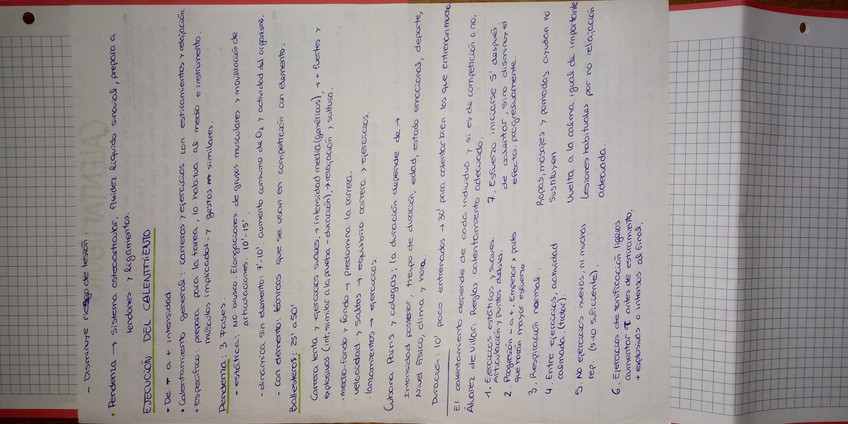 - Disminuye riesgo de lesión
• Pendenza → sistema osteoarticular, fluidez líquido sinovial, prepara a
tendones y ligamentos.
EJECUCIÓN DEL CALENTMIENTO
• De - a + intensidad
• Calentamiento general: carreras y ejercicios con estiramientos y relajación
• Específico: prepara para la tarea, lo habitúa al medio e instrumento.
músculos implicados y gestos similares.
Pendenza: 3 Fases.
- estática: NO brusco. Elongaciones de grupos musculares y movilización de
articulaciones. 10'-15'
- dinámica sin elemento: 7'-10'. aumento consumo de O2 y actividad del organismo.
- con elemento: técnicas que se usan en competición con elemento.
Ballesteros: 25' a 50'
Carrera lenta y ejercicios suaves, → intensidad media (genéricos), → + fuertes y
explosivos (int. similar a la prueba - duración), → relajación y soltura.
· medio-fondo y fondo → predomina la carrera.
· velocidad y saltos → equilibrio carrera y ejercicios
· lanzamientos → ejercicios
Cuberra París y colegas: la duración depende de →
Intensidad posterior, tiempo de duración, edad, estado emocional, deporte,
Nivel físico, clima y hora
Duración: 10' poco entrenados → 30' para calentar bien los que entrenan mucho
El calentamiento depende de cada individuo y si es de competición o no.
Álvarez de Villar: Reglas calentamiento adecuado.
1. Ejercicios estáticos y suaves.
Articulación y puntos débiles.
2. Progresión - a +. Empezar x partes
que harán mayor esfuerzo
3. Respiración normal.
4. Entre ejercicios, actividad
calmada (trotar).
5. No ejercicios nuevos, ni muchas
rep. (5-10 suficiente).
6. Ejercicios de tonificación ligeros
aumentar T antes de estiramiento,
+ explosivos o intensos al final.
7. Esfuerzo iniciarse 5' después
de calentar, sino disminuye el
efecto progresivamente.
Ropas, masajes y pomadas ayudan no
sustituyen
Vuelta a la calma igual de importante
Lesiones habituales por no relajación
adecuada.